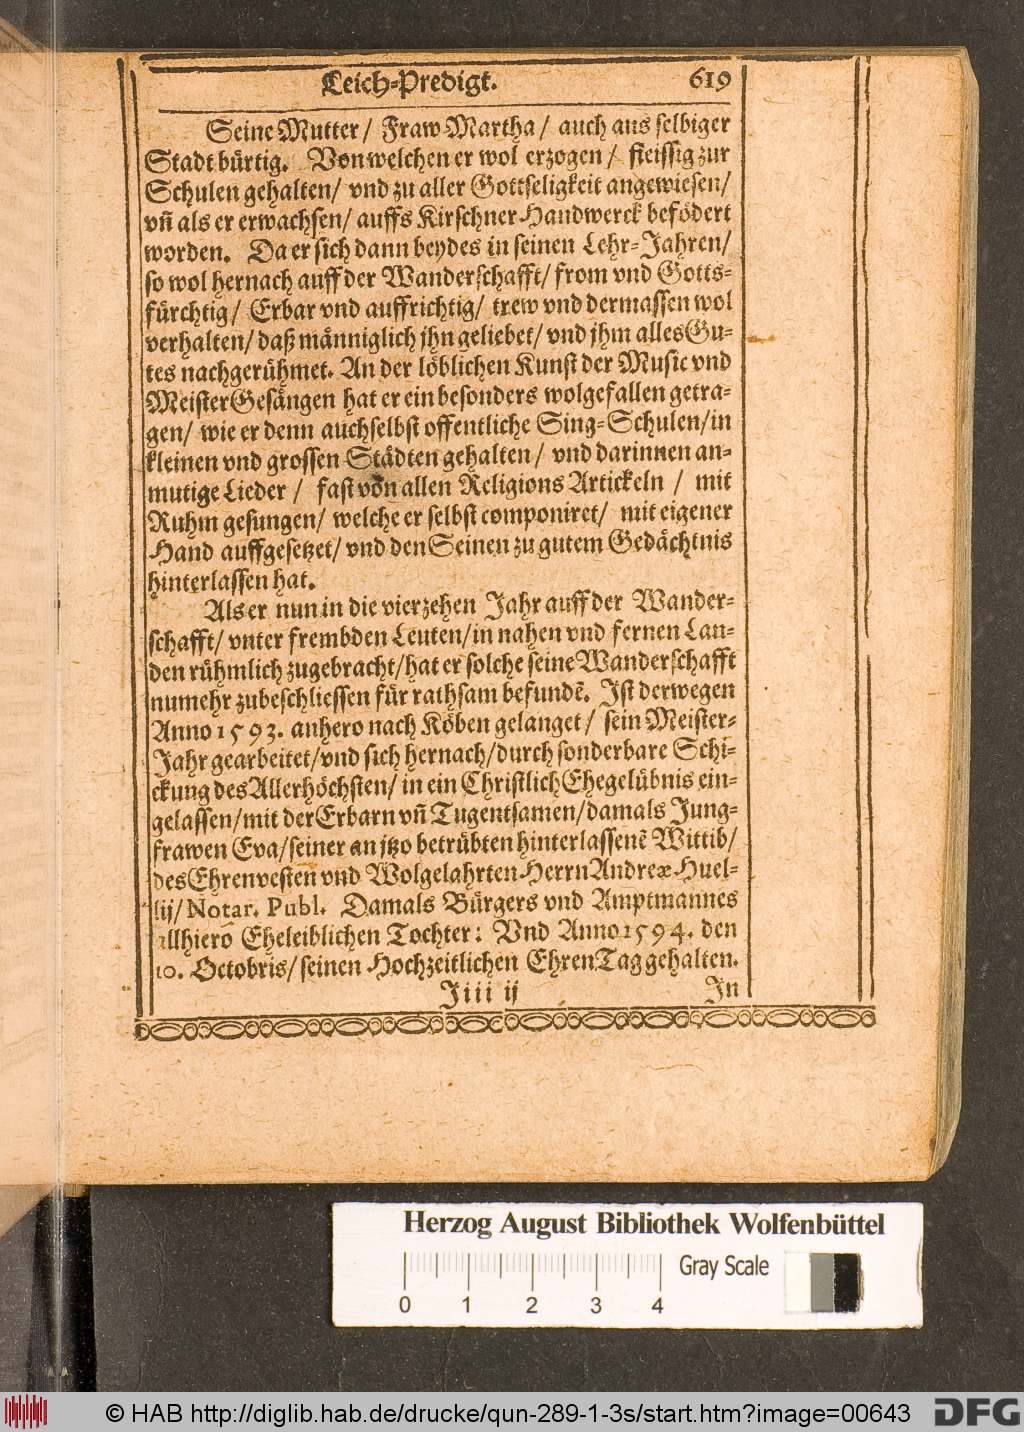 Leich-Predigt. 619
Seine Mutter/ Fraw Martha/ auch aus selbiger
Stadt bürtig. Von welchen er wol erzogen/ fleissig zur
Schulen gehalten/ vnd zu aller Gottseligkeit angewiesen/
vñ als er erwachsen/ auffs Kirschner Handwerck befödert
worden. Da er sich dann beydes in seinen Lehr-Jahren/
so wol hernach auff der Wanderschafft/ from vnd Gotts-
fürchtig/ Erbar vnd auffrichtig/ trew vnd dermassen wol
verhalten/ daß männiglich jhn geliebet/ vnd jhm alles Gu-
tes nachgerühmet. An der löblichen Kunst der Music vnd
Meister Gesängen hat er ein besonders wolgefallen getra-
gen/ wie er denn auch selbst offentliche Sing-Schulen/ in
kleinen vnd grossen Städten gehalten/ vnd darinnen an-
mutige Lieder/ fast von allen Religions Artickeln/ mit
Ruhm gesungen/ welche er selbst componiret/ mit eigener
Hand auffgesetzet/ vnd den Seinen zu gutem Gedächtnis
hinterlassen hat.
Als er nun in die vierzehen Jahr auff der Wander-
schafft/ vnter frembden Leuten/ in nahen vnd fernen Lan-
den rühmlich zugebracht/ hat er solche seine Wanderschafft
numehr zubeschliessen für rathsam befundẽ. Ist derwegen
Anno 1593. anhero nach Köben gelanget/ sein Meister-
Jahr gearbeitet/ vnd sich hernach/ durch sonderbare Schi-
ckung des Allerhöchsten/ in ein Christlich Ehegelübnis ein-
gelassen/ mit der Erbarn vñ Tugentsamen/ damals Jung-
frawen Eva/ seiner an jtzo betrübten hinterlassenẽ Wittib/
des Ehrenvesten vnd Wolgelahrten Herrn Andreæ Huel-
lij/ Notar. Publ. Damals Bürgers vnd Amptmannes
allhiero Eheleiblichen Tochter: Vnd Anno 1594. den
10. Octobris/ seinen Hochzeitlichen Ehren Tag gehalten.
Jiii ij In
Herzog August Bibliothek Wolfenbüttel
Gray Scale
0 1 2 3 4
© HAB http://diglib.hab.de/drucke/qun-289-1-3s/start.htm?image=00643 DFG